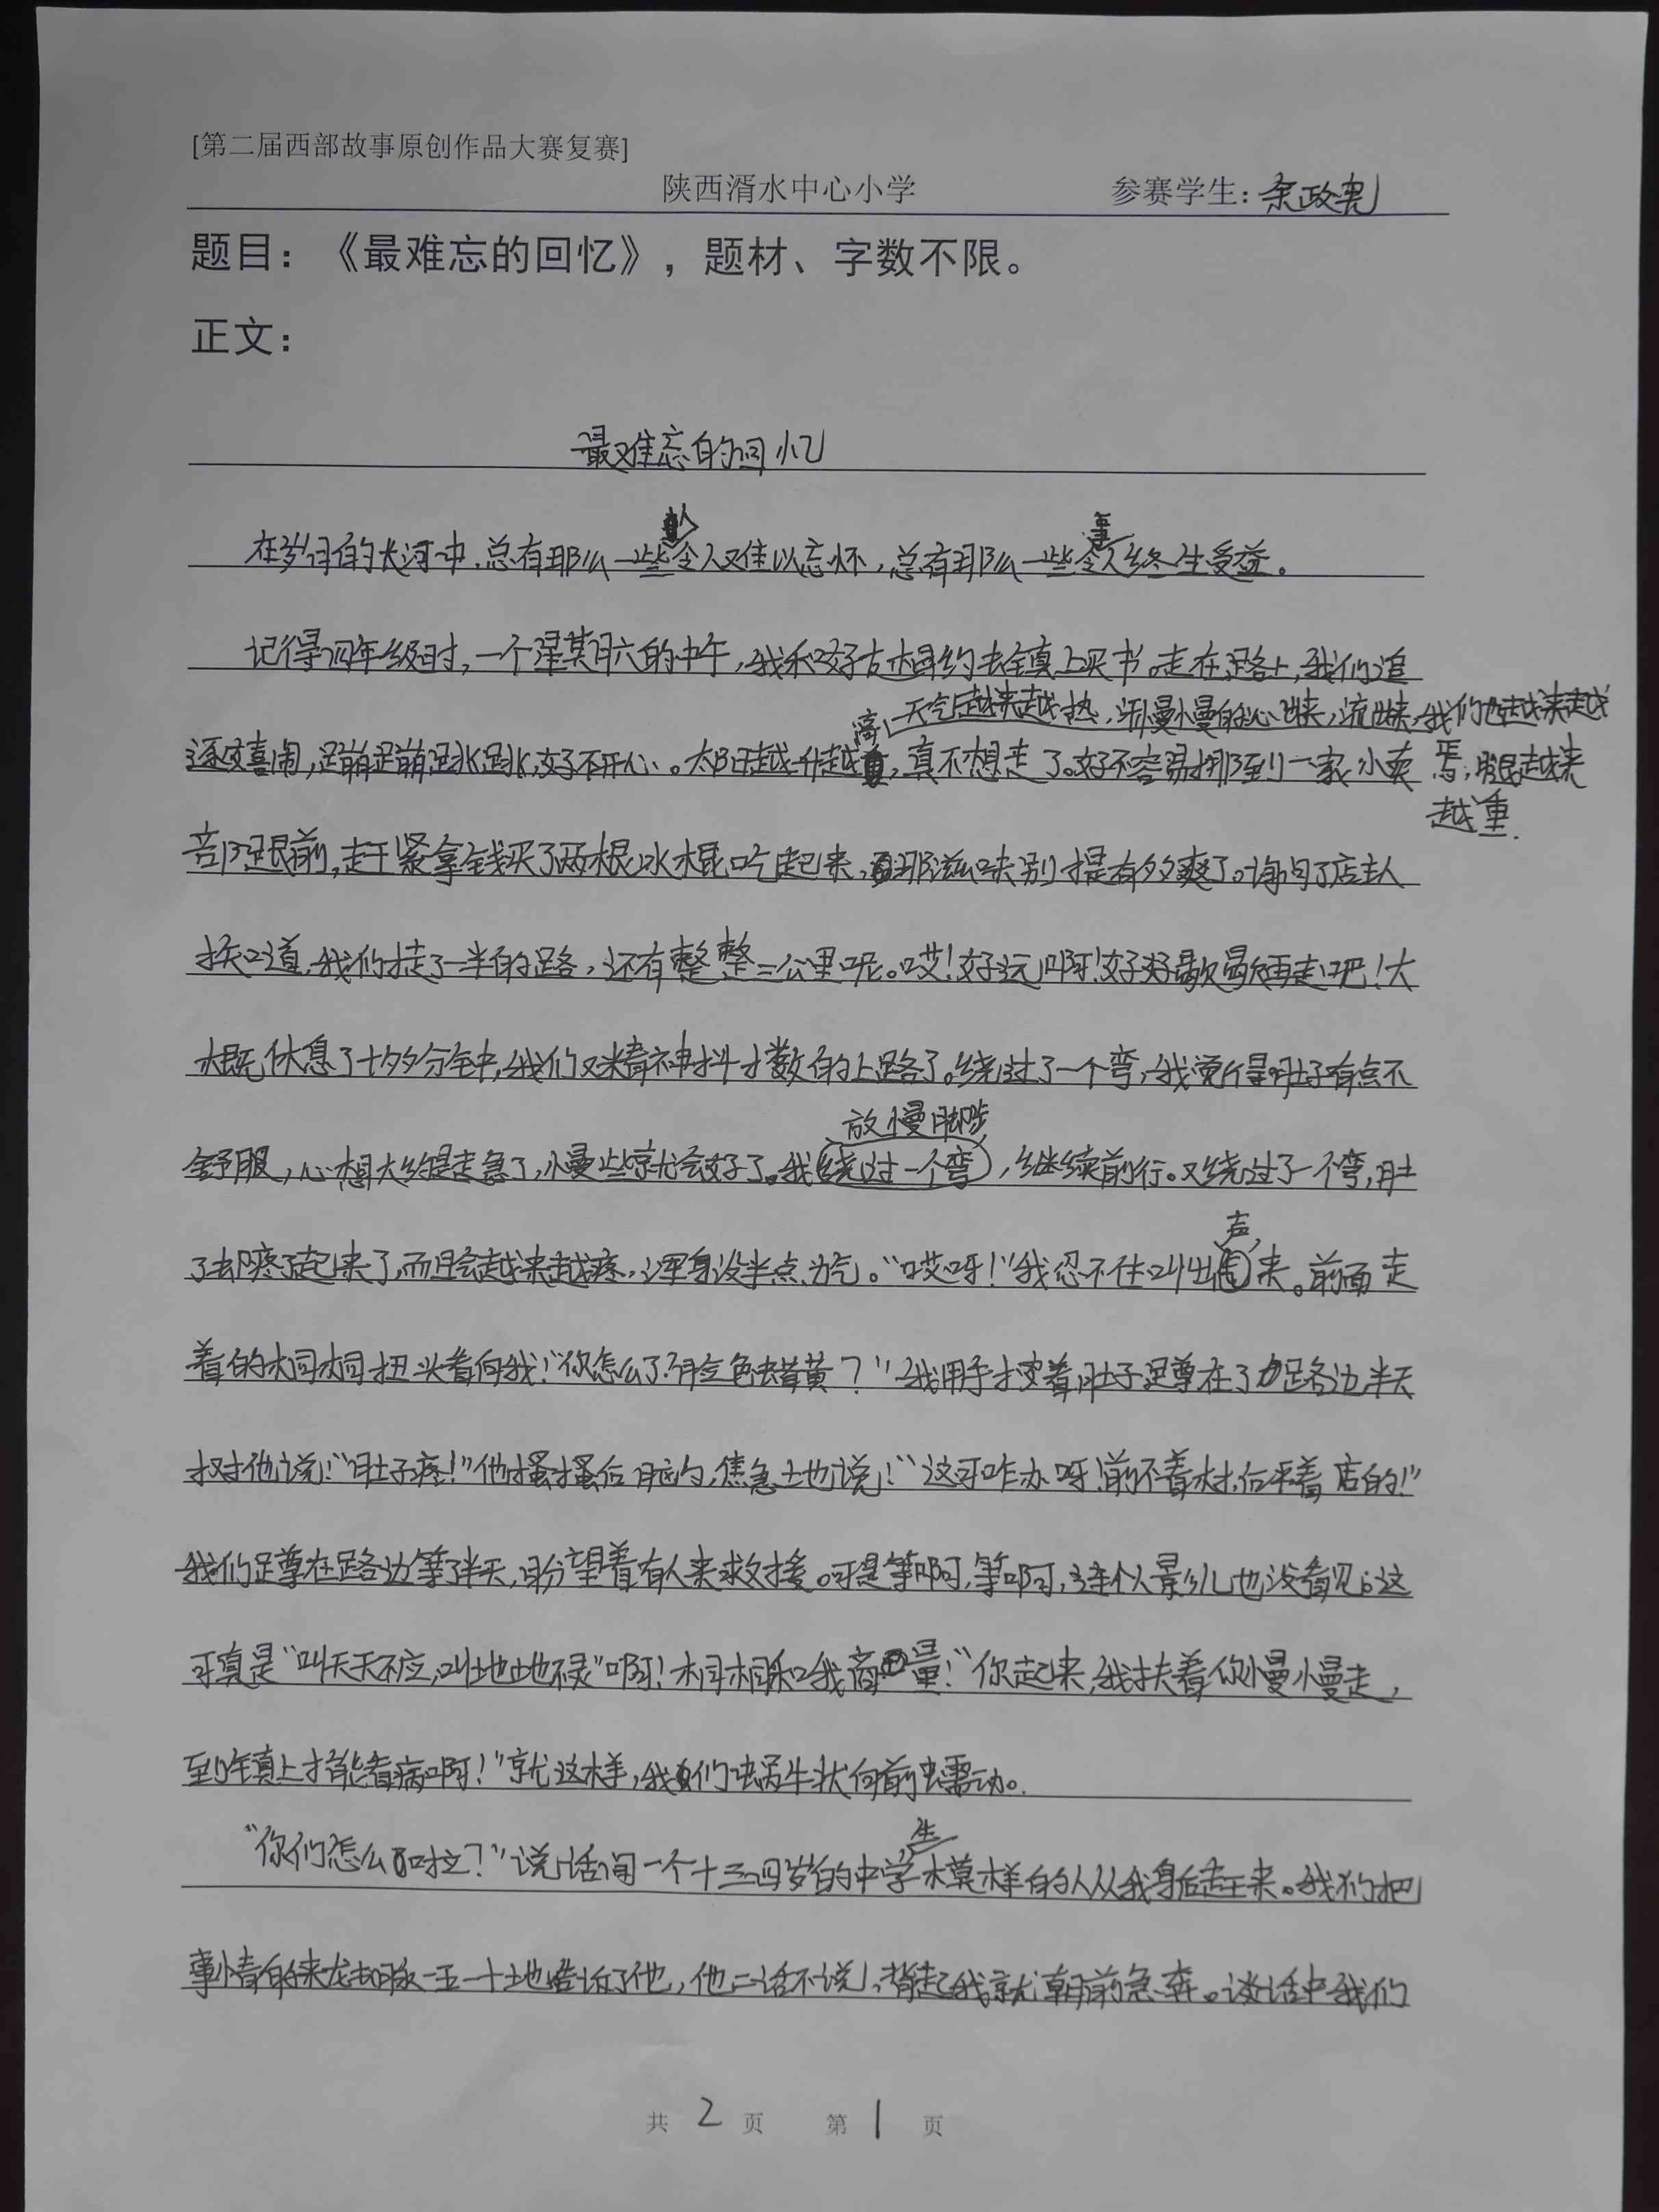 [第二届西部故事原创作品大赛复赛]
陕西湑水中心小学 参赛学生：余政尧
题目：《最难忘的回忆》，题材、字数不限。
正文：
最难忘的回忆
人 事
在岁月的长河中，总有那么一些令人难以忘怀，总有那么一些令人终生受益。
记得四年级时，一个星期六的中午，我和好友相约去镇上买书。走在路上，我们追
高 天气越来越热，汗慢慢的沁出来，流出来，我们也越来越
逐嬉闹，蹦蹦跳跳，好不开心。太阳越升越，真不想走了。好不容易挪到一家小卖 焉，腿越来
越重.
部跟前，赶紧拿钱买了两根冰棍吃起来，那滋味别提有多爽了。询问了店主人
换口道，我们才走了一半的路，还有整整三公里呢。哎！好远啊！好好歇歇再走吧！大
概休息了十多分钟，我们又精神抖擞的上路了。绕过了一个弯，我觉得肚子有点不
放慢脚步
舒服，心想大约是走急了，慢些就会好了。我绕过一个弯，继续前行。又绕过了一个弯，肚
声，
子却疼了起来了，而且会越来越疼，浑身没半点力气。“哎呀！”我忍不住叫出来。前面走
着的桐桐扭头看向我：“你怎么了？脸色蜡黄？”我用手按着肚子蹲在了路边半天
才对他说：“肚子疼！”他搔搔后脑勺，焦急地说：“这可咋办呀！前不着村，后不着店的！”
我们蹲在路边等了半天，盼望着有人来救援。可是等啊，等啊，连个人影儿也没看见。这
可真是“叫天天不应，叫地地不灵”啊！桐桐和我商量：“你起来，我扶着你慢慢走，
到镇上才能看病啊！”就这样，我们蜗牛状向前蠕动。
生
“你们怎么啦？”说话间一个十三四岁的中学模样的人从我身后走上来。我们把
事情的来龙去脉一五一十地告诉了他，他二话不说，背起我就朝前急奔。谈话中我们
共 2 页 第 1 页